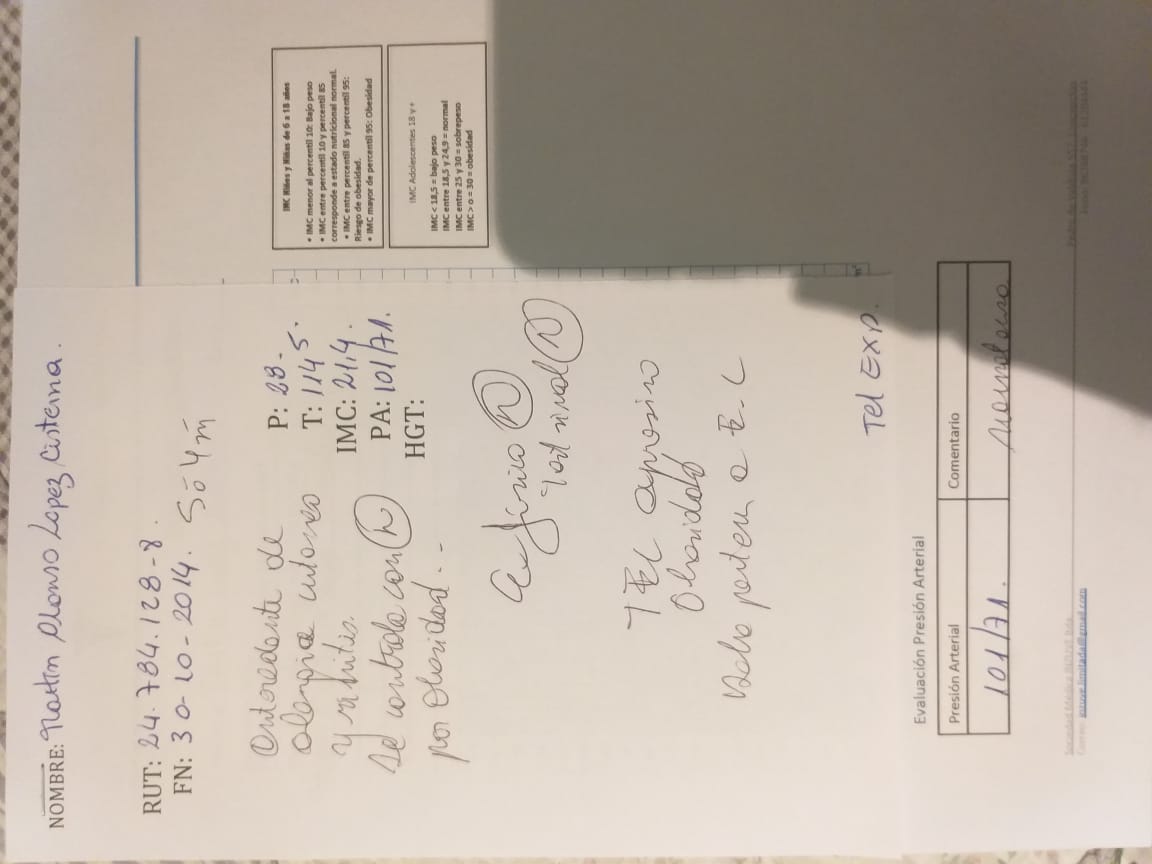 NOMBRE: Martin Alonso Lopez Cisterna.
RUT: 24.784.128-8.
FN: 30-10-2014. 5ā 4m̄
Antecedente de
alergia cutanea
y rinitis.
Se controla con N
por Obesidad. --
P: 28-
T: 114 5.
IMC: 21,4.
PA: 101/71.
HGT:
IMC Niños y Niñas de 6 a 18 años
• IMC menor al percentil 10: Bajo peso
• IMC entre percentil 10 y percentil 85
corresponde a estado nutricional normal.
• IMC entre percentil 85 y percentil 95:
Riesgo de obesidad.
• IMC mayor de percentil 95: Obesidad
IMC Adolescentes 18 y +
IMC < 18,5 = bajo peso
IMC entre 18,5 y 24,9 = normal
IMC entre 25 y 30 = sobrepeso
IMC > o = 30 = obesidad
Ex físico N
N
TEL
Obesidad
a E.C
Tel Exp.
Evaluación Presión Arterial
Presión Arterial Comentario
101/71. Normotenso
Sociedad Médica INZUVE ltda.
Correo: inzuve.limitada@gmail.com
Pedro de Valdivia 557, Concepción